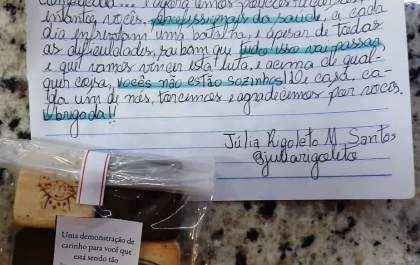 enquanto, vocês, profissionais da saúde, a cada
dia enfrentam uma batalha, e apesar de todas
as dificuldades, saibam que tudo isso vai passar
e que vamos vencer esta luta, e acima de qual-
quer coisa, vocês não estão sozinhos! De casa, ca-
da um de nós, torcemos e agradecemos por vocês.
Obrigada!!
Júlia Rigoleto N Santos
@juliarigoleto
Uma demonstração de
carinho para você que
está sendo tão